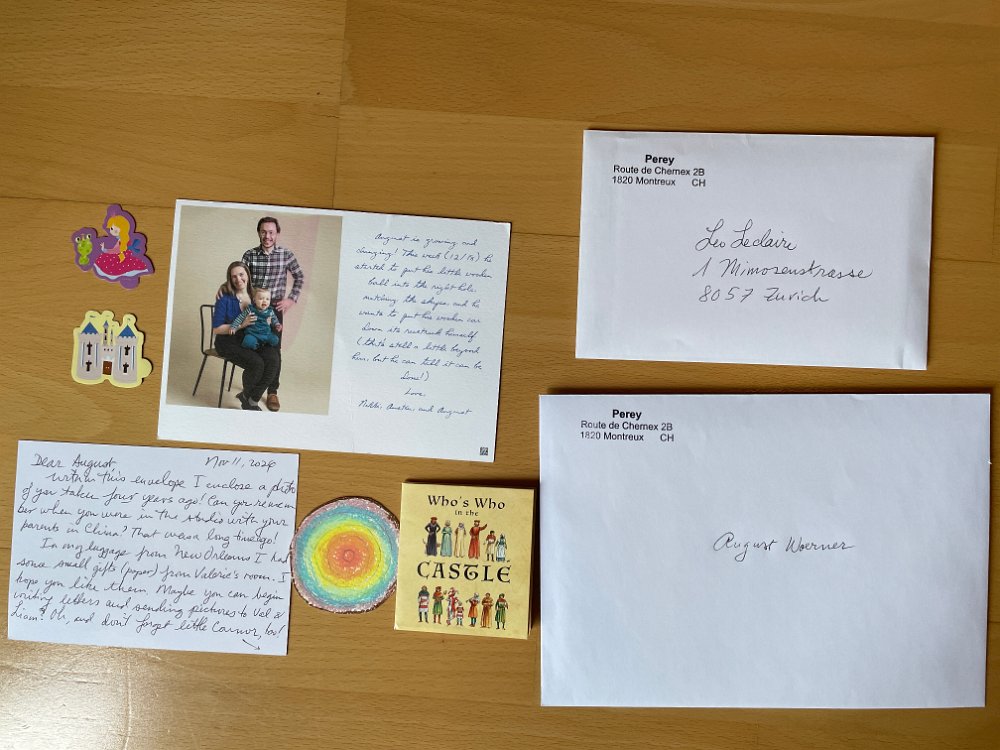 August is growing and
changing! This week (12/18) he
started to put his little wooden
ball into the right hole,
matching the shapes, and he
wants to put his wooden car
down its racetrack himself
(that's still a little beyond
him, but he can tell it can be
done!)
Love,
Nikki, Austin, and August
Perey
Route de Chernex 2B
1820 Montreux CH
Leo Leclaire
1 Mimosenstrasse
8057 Zurich
Perey
Route de Chernex 2B
1820 Montreux CH
August Woerner
Dear August Nov 11, 2024
within this envelope I enclose a photo
of you taken four years ago! Can you remem
ber when you were in the studio with your
parents in China? That was a long time ago!
In my luggage from New Orleans I had
some small gifts (paper) from Valerie's room. I
hope you like them. Maybe you can begin
writing letters and sending pictures to Val &
Liam? Oh, and don't forget little Connor, too!
Who's Who
in the
CASTLE